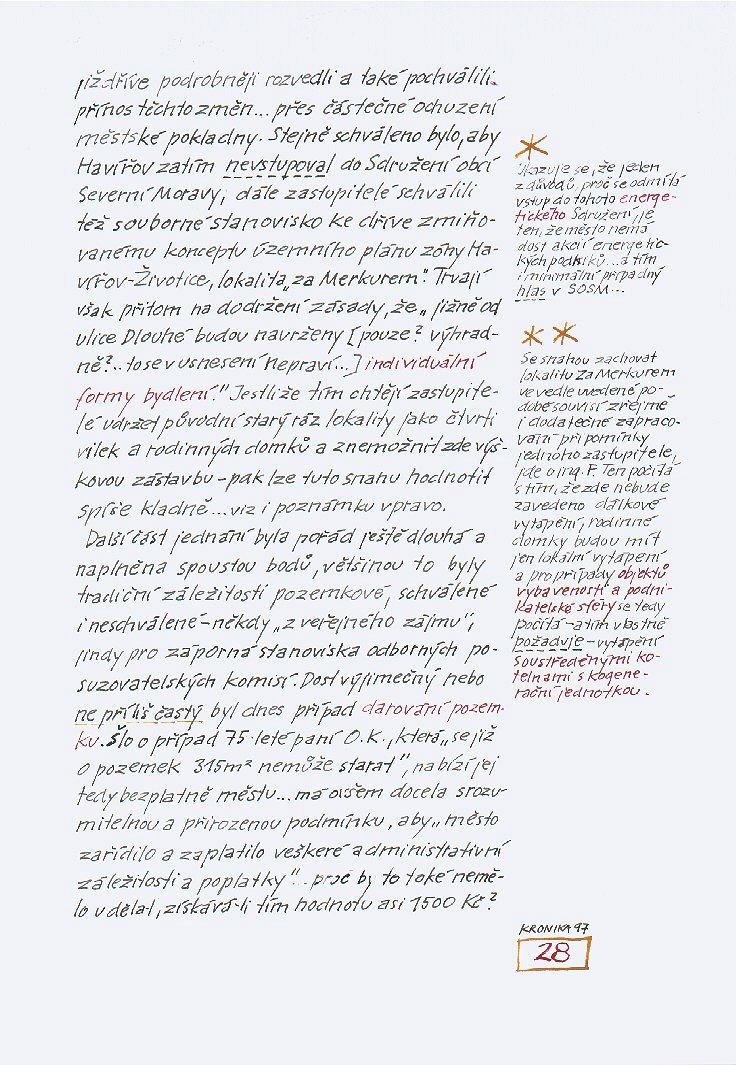 již dříve podrobněji rozvedli a také pochválili
přínos těchto změn... přes částečné ochuzení
městské pokladny. Stejně schváleno bylo, aby
Havířov zatím nevstupoval do Sdružení obcí
Severní Moravy; dále zastupitelé schválili
též souborné stanovisko ke dříve zmiňo-
vanému konceptu územního plánu zóny Ha-
vířov-Životice, lokalita „za Merkurem". Trvají
však přitom na dodržení zásady, že „jižně od
ulice Dlouhé budou navrženy [pouze? výhrad-
ně?.. to se v usnesení nepraví...] individuální
formy bydlení." Jestliže tím chtějí zastupite-
lé udržet původní starý ráz lokality jako čtvrti
vilek a rodinných domků a znemožnit zde výš-
kovou zástavbu – pak lze tuto snahu hodnotit
spíše kladně... viz i poznámku vpravo.
Další část jednání byla pořád ještě dlouhá a
naplněna spoustou bodů, většinou to byly
tradiční záležitosti pozemkové, schválené
i neschválené – někdy „z veřejného zájmu",
jindy pro záporná stanoviska odborných po-
suzovatelských komisí. Dost výjimečný nebo
ne příliš častý byl dnes případ darování pozem-
ku. Šlo o případ 75-leté paní O.K., která „se již
o pozemek 315m² nemůže starat", nabízí jej
tedy bezplatně městu... má ovšem docela srozu-
mitelnou a přirozenou podmínku, aby „město
zařídilo a zaplatilo veškeré administrativní
záležitosti a poplatky"... proč by to také nemě-
lo udělat, získává-li tím hodnotu asi 1500 Kč?
*
Ukazuje se, že jeden
z důvodů, proč se odmítá
vstup do tohoto energe-
tického Sdružení, je
ten, že město nemá
dost akcií energetic-
kých podniků... a tím
i minimální případný
hlas v SOSM...
* *
Se snahou zachovat
lokalitu Za Merkurem
ve vedle uvedené po-
době souvisí zřejmě
i dodatečné zapraco-
vání připomínky
jednoho zastupitele,
jde o ing. F. Ten počítá
s tím, že zde nebude
zavedeno dálkové
vytápění, rodinné
domky budou mít
jen lokální vytápění
a pro případy objektů
vybavenosti a podni-
katelské sféry se tedy
počítá – a tím vlastně
požaduje – vytápění
soustředěnými ko-
telnami s kogene-
rační jednotkou.
KRONIKA 97
28